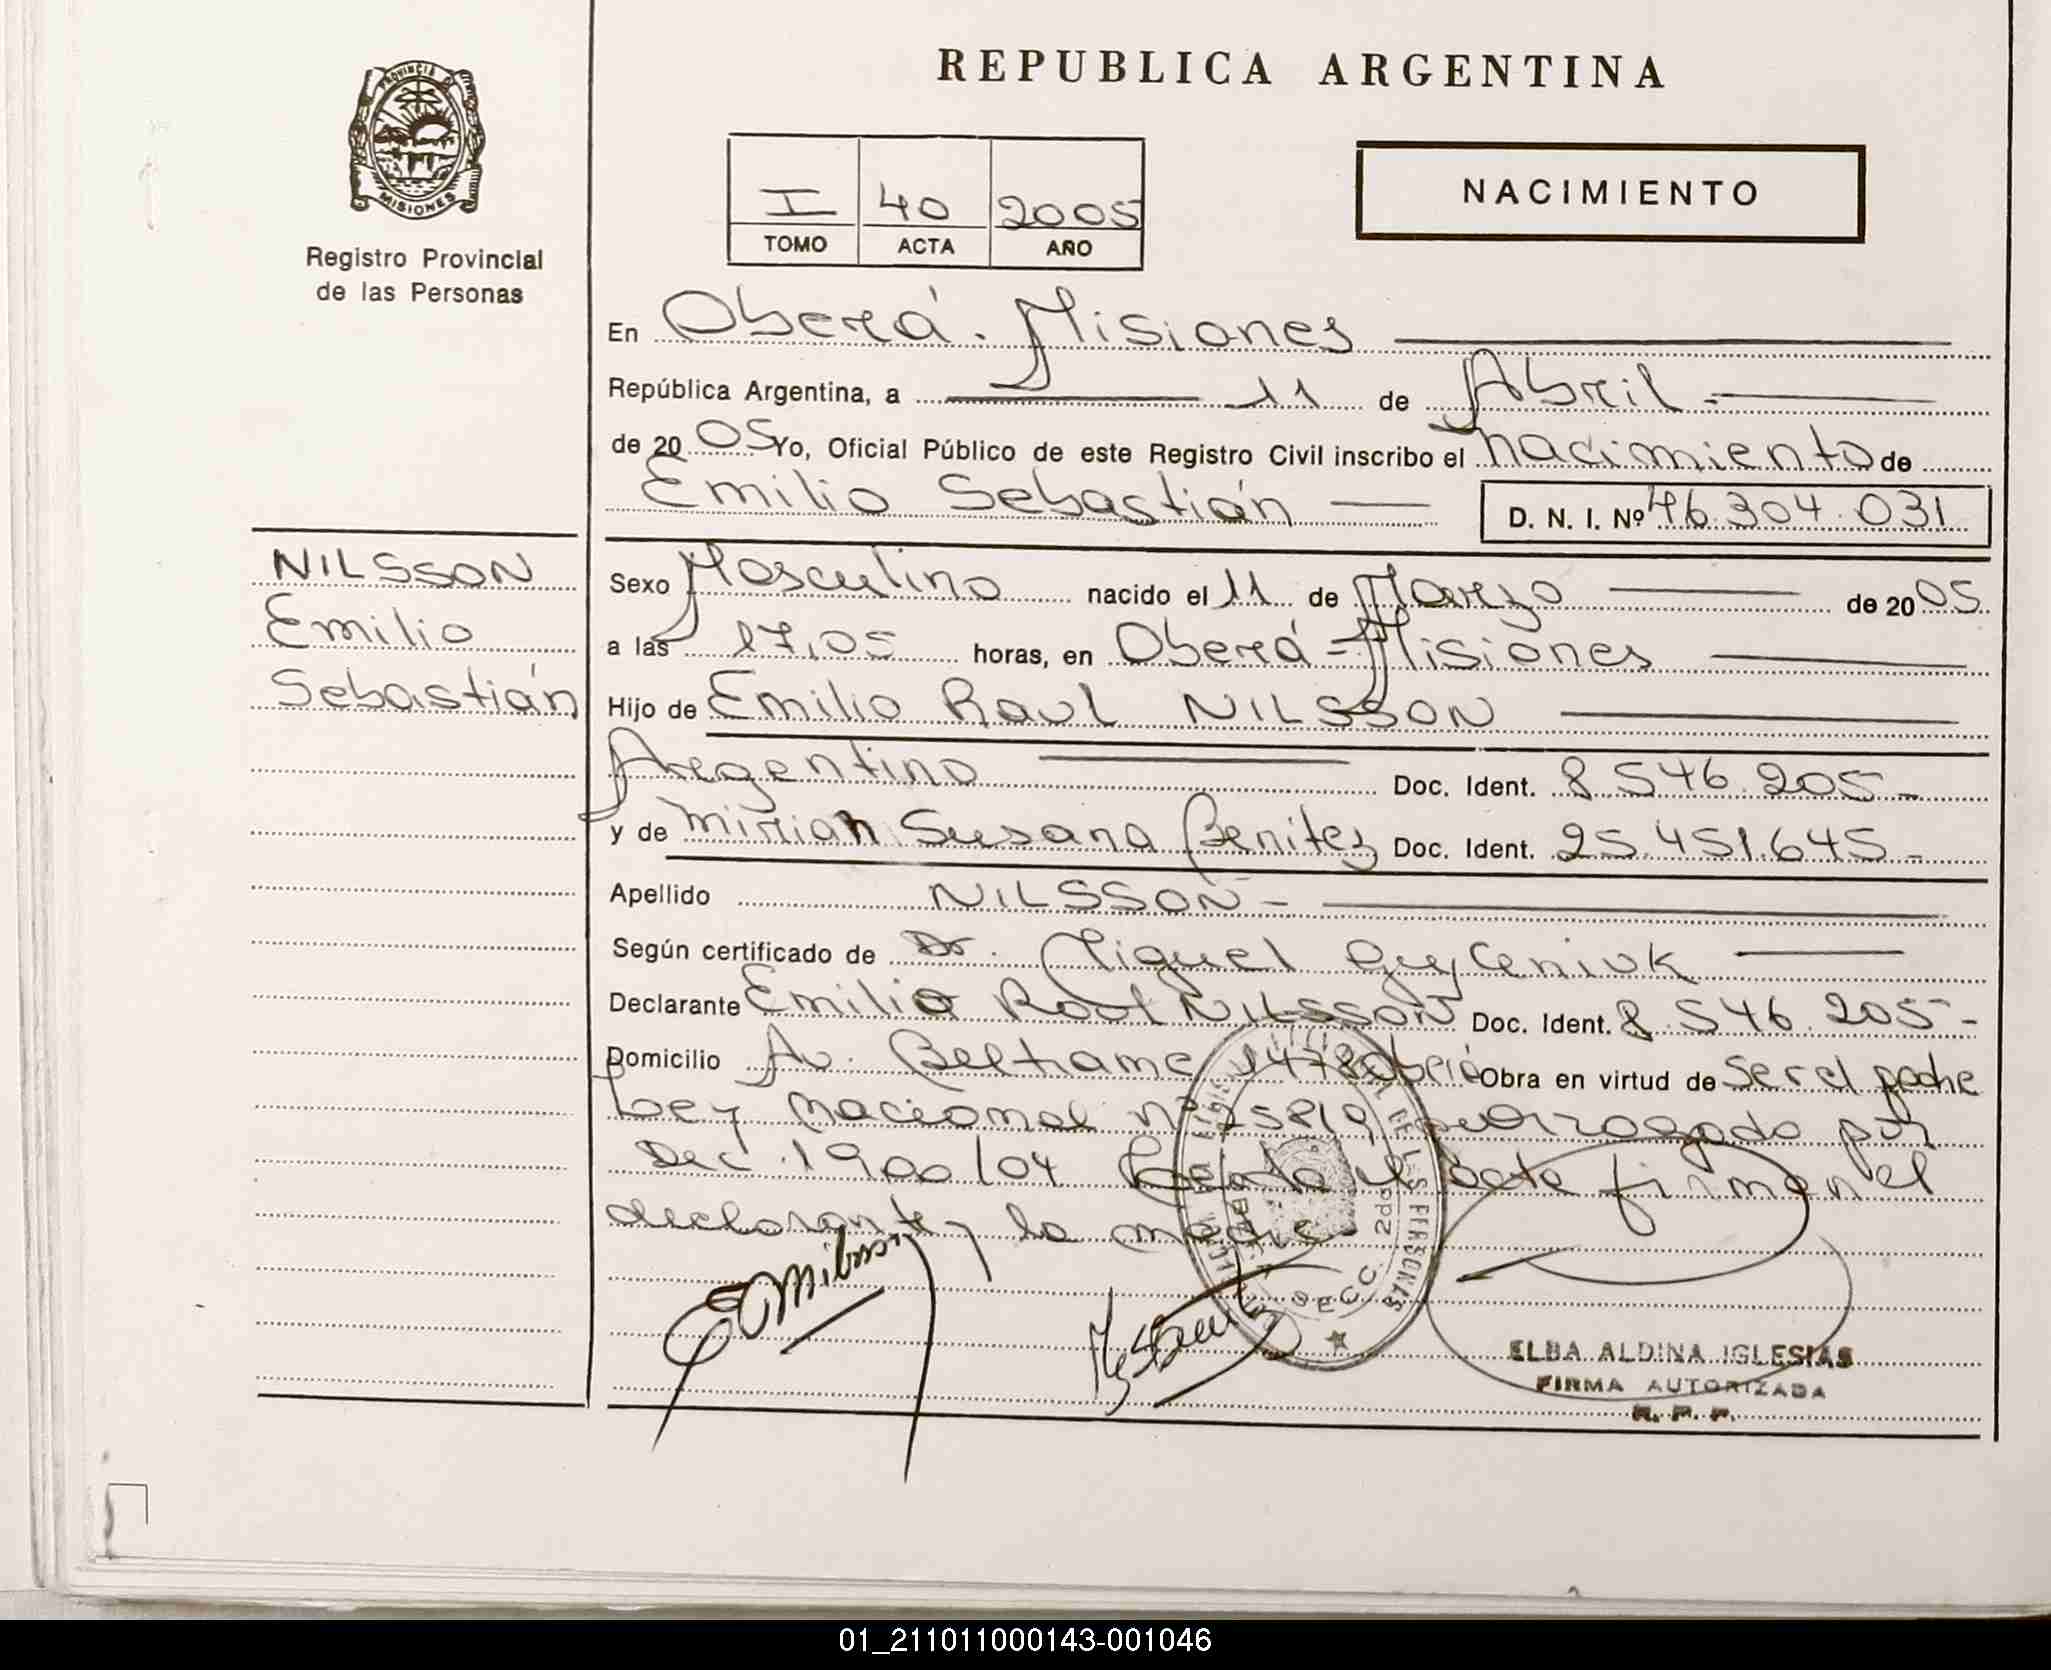 REPUBLICA ARGENTINA
PROVINCIA DE
MISIONES
Registro Provincial
de las Personas
I 40 2005
TOMO ACTA AÑO
NACIMIENTO
En Oberá. Misiones
República Argentina, a 11 de Abril.
de 2005 Yo, Oficial Público de este Registro Civil inscribo el nacimiento de
Emilio Sebastián D. N. I. Nº 46.304.031
NILSSON
Emilio
Sebastián
Sexo Masculino nacido el 11 de Marzo de 2005
a las 17,05 horas, en Oberá - Misiones
Hijo de Emilio Raul NILSSON
Argentino Doc. Ident. 8.546.205-
y de Mirian Susana Benitez Doc. Ident. 25.451.645-
Apellido NILSSON-
Según certificado de Dr. Miguel
Declarante Emilio Raul NILSSON Doc. Ident. 8.546.205-
Domicilio Av. Beltrame 1478 Oberá Obra en virtud de ser el padre
Ley Nacional nº 25819 prorrogado por
Dec. 1900/04 Leida el acta firman el
declarante y la madre
SECC. 2da
ELBA ALDINA IGLESIAS
FIRMA AUTORIZADA
R. P. P.
01_211011000143-001046